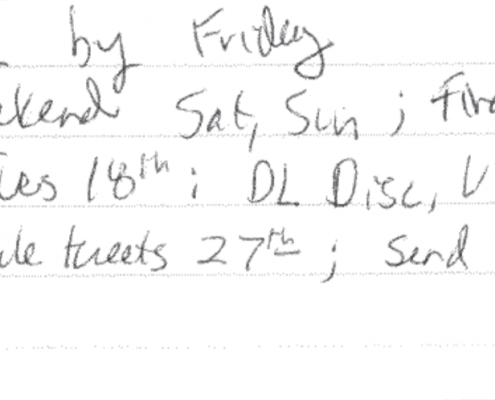 by Friday
ekend Sat, Sun ; Fin
ues 18th ; DL Disc, V
ule tweets 27th ; Send